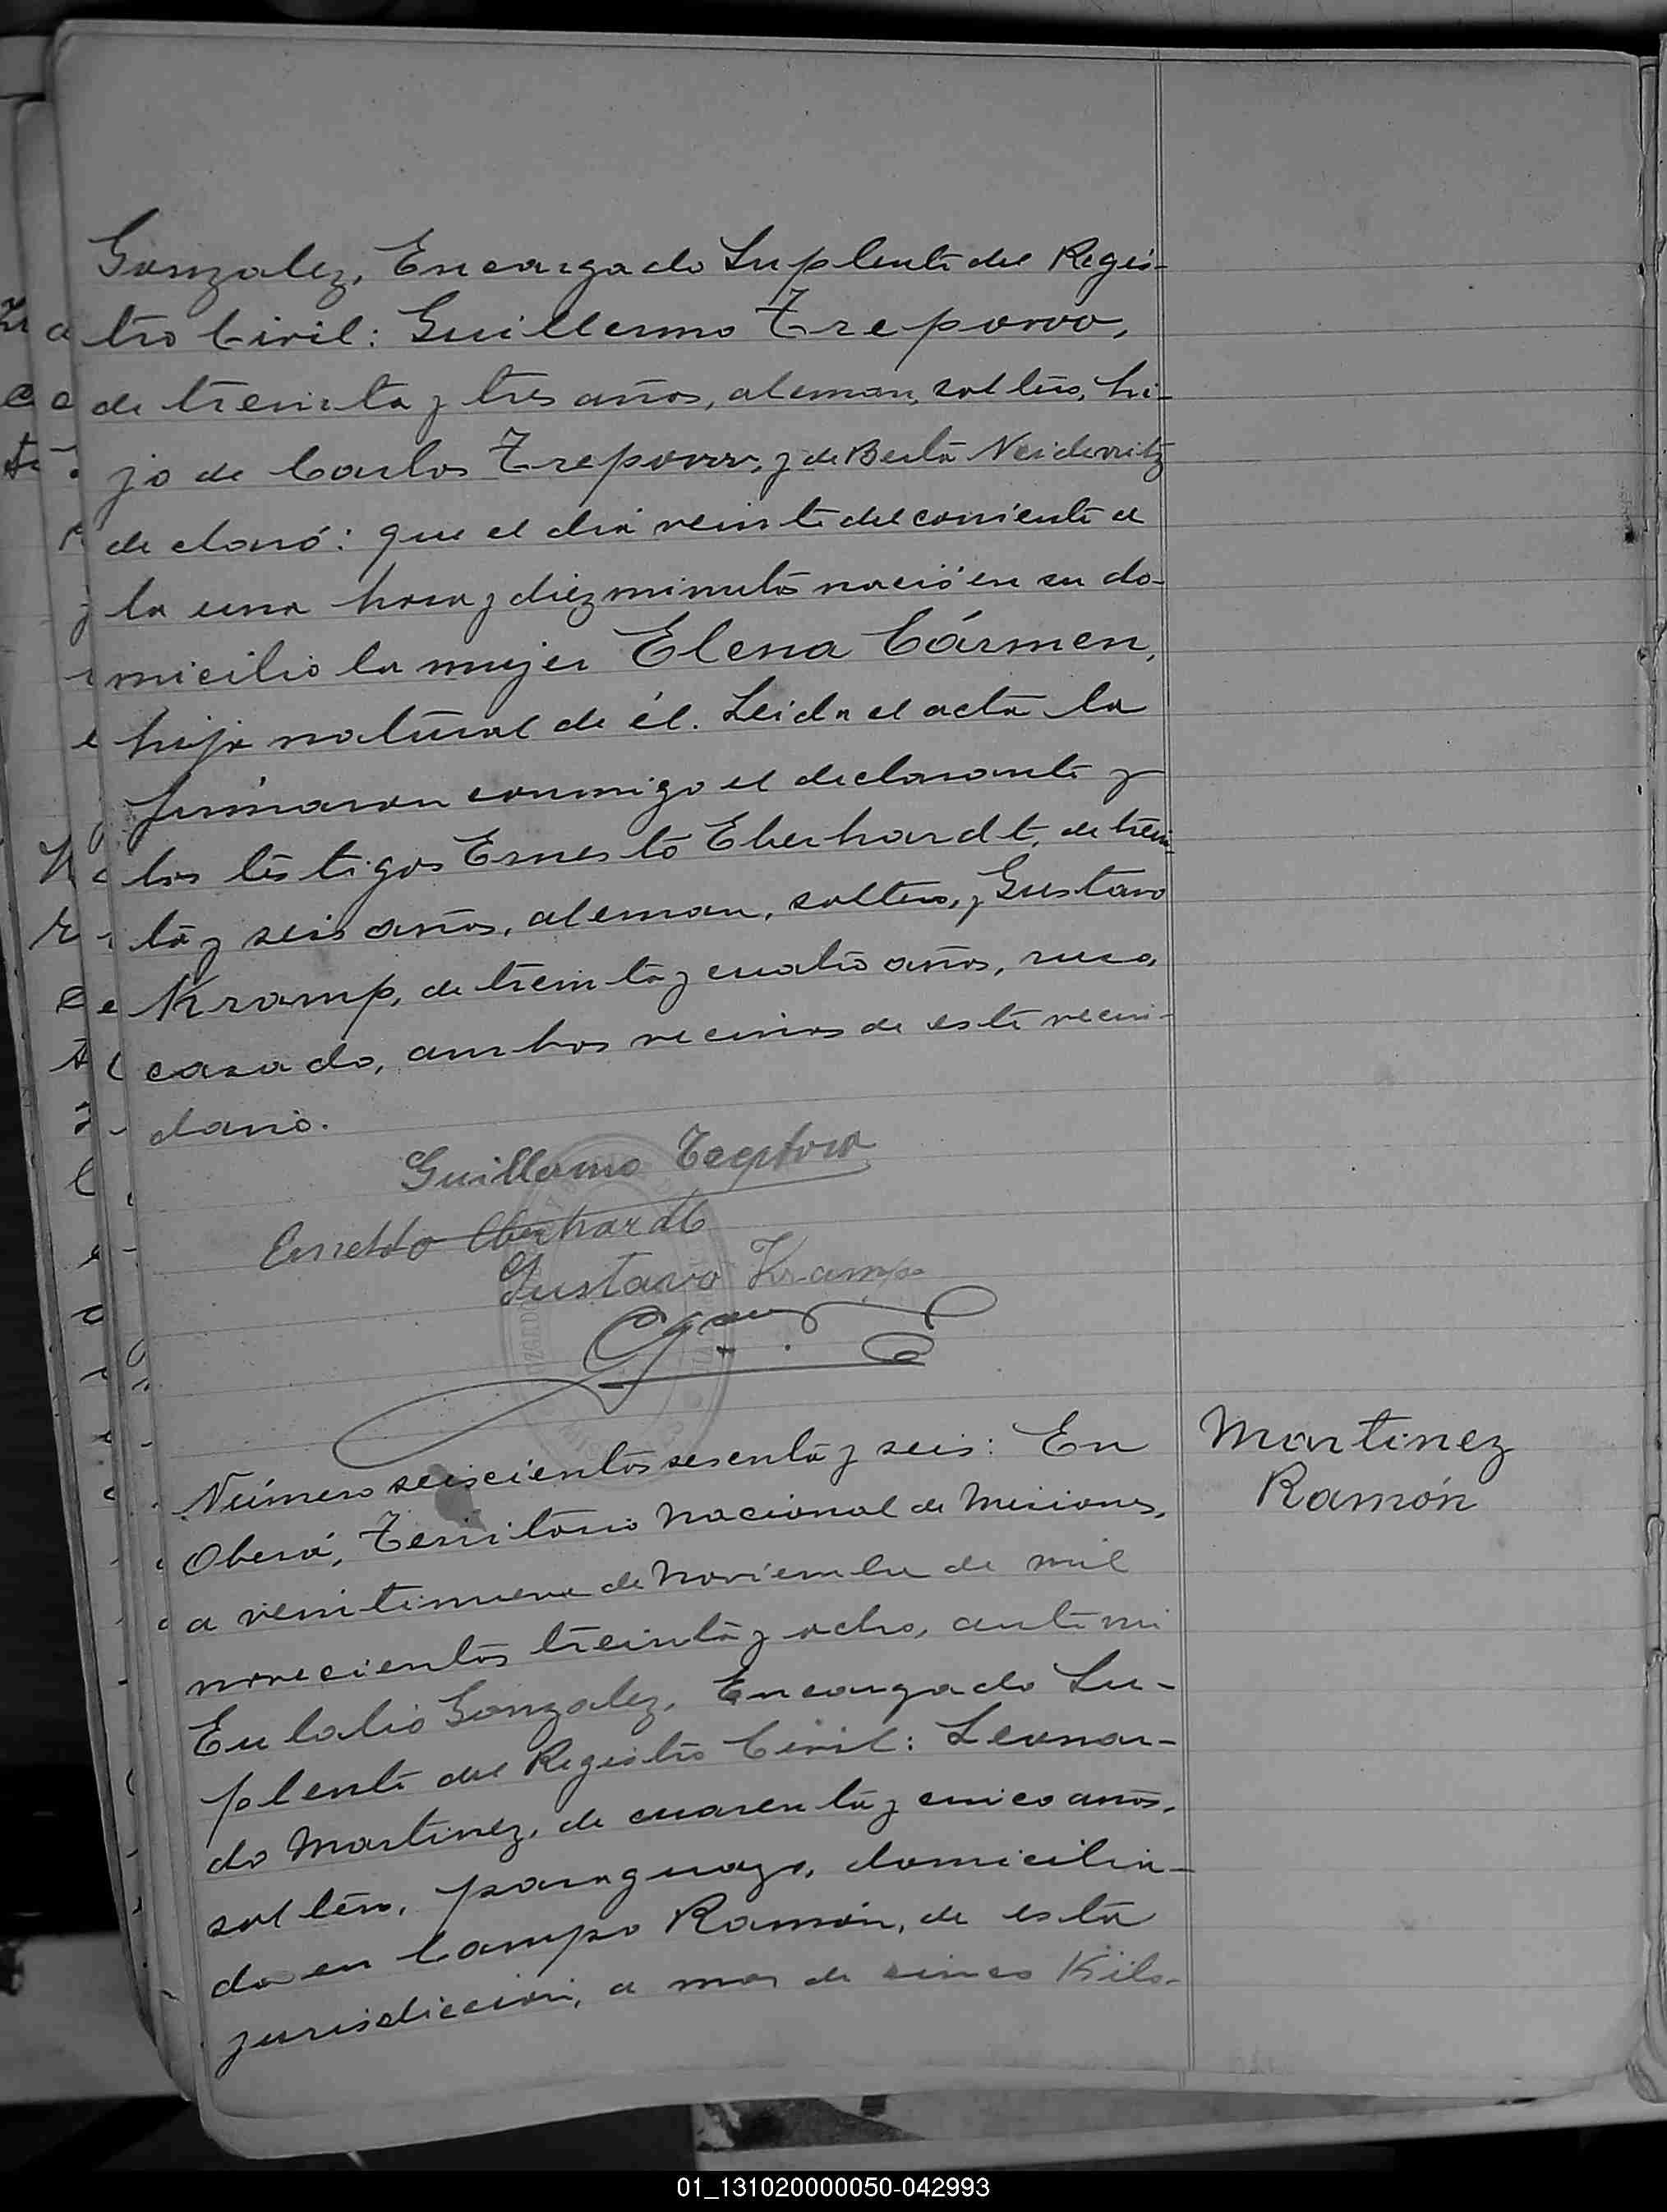 Gonzalez, Encargado Suplente del Regis-
tro Civil: Guillermo Treporow,
de treinta y tres años, aleman, soltero, hi-
jo de Carlos Treporow, y de Berta
declaró: que el dia veinte del corriente a
la una hora y diez minutos nació en su do-
micilio la mujer Elena Cármen,
hija natural de él. Leida el acta la
firmaron conmigo el declarante y
los testigos Ernesto Eberhardt, de trein-
ta y seis años, aleman, soltero, y Gustavo
Kramp, de treinta y cuatro años, ruso,
casado, ambos vecinos de este vecin-
dario.
Guillermo
Ernesto Eberhardt
Gustavo Kramp
Número seiscientos sesenta y seis: En
Oberá, Territorio Nacional de Misiones,
a veintinueve de Noviembre de mil
novecientos treinta y ocho, ante mi
Eulalio Gonzalez, Encargado Su-
plente del Registro Civil: Leonar-
do Martinez, de cuarenta y cinco años,
soltero, paraguayo, domicilia-
do en Campo Ramón, de esta
jurisdiccion, a mas de cinco Kilo-
Martinez
Ramón
01_131020000050-042993